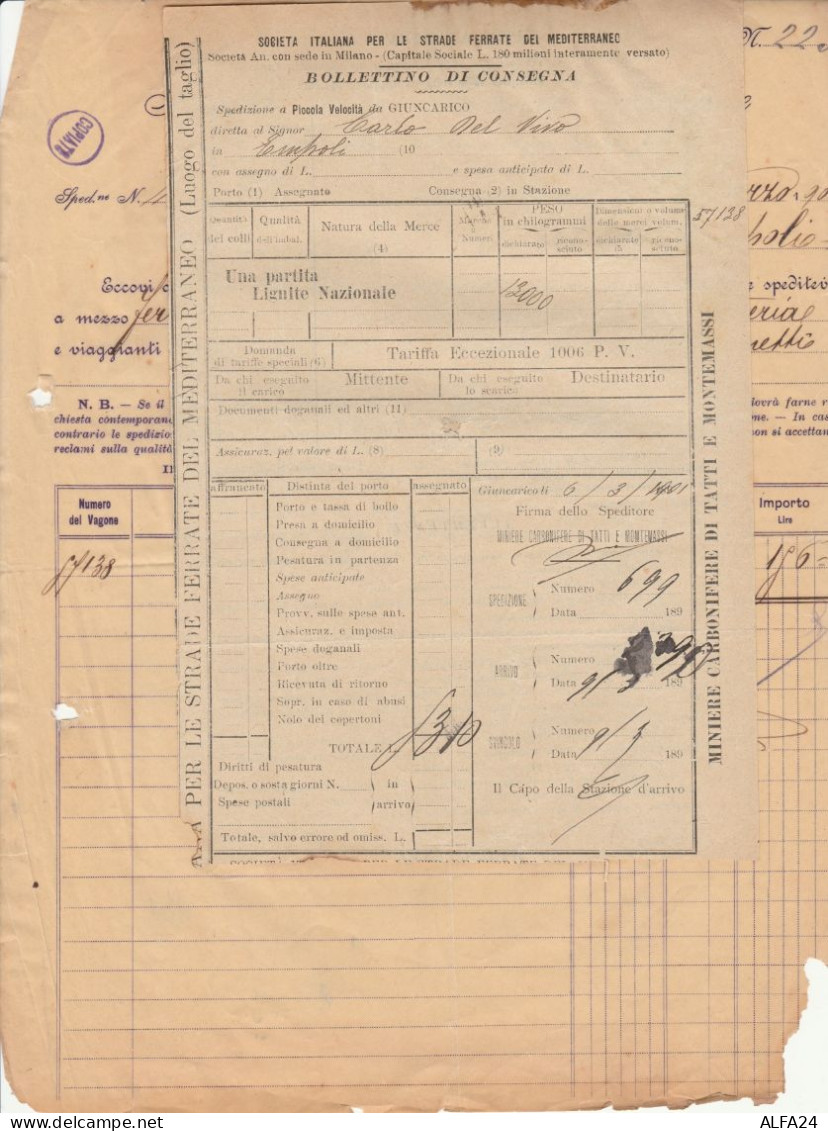 SOCIETÀ ITALIANA PER LE STRADE FERRATE DEL MEDITERRANEO
Società An. con sede in Milano - (Capitale Sociale L. 180 milioni interamente versato)
BOLLETTINO DI CONSEGNA
Spedizione a Piccola Velocità da GIUNCARICO
diretta al Signor Carlo Del Vivo
in Empoli (10
con assegno di L. e spesa anticipata di L.
Porto (1) Assegnato Consegna (2) in Stazione
Quantità dei colli
Qualità dell'imbal.
Natura della Merce (4)
Marche Numeri
PESO in chilogrammi
dichiarato
ricono-sciuto
Dimensioni o volume delle merci volum.
dichiarate
ricono-sciute
Una partita
Lignite Nazionale
12000
57138
Domanda di tariffe speciali (6)
Tariffa Eccezionale 1006 P. V.
Da chi eseguito il carico
Mittente
Da chi eseguito lo scarico
Destinatario
Documenti doganali ed altri (11)
Assicuraz. pel valore di L. (8)
(9)
affrancato
Distinta del porto
assegnato
Porto e tassa di bollo
Presa a domicilio
Consegna a domicilio
Pesatura in partenza
Spese anticipate
Assegno
Provv. sulle spese ant.
Assicuraz. e imposta
Spese doganali
Porto oltre
Ricevuta di ritorno
Sopr. in caso di abusi
Nolo dei copertoni
TOTALE L.
Diritti di pesatura
Depos. o sosta giorni N. in
Spese postali arrivo
Totale, salvo errore od omiss. L.
Giuncarico li 6/3/1901
Firma dello Speditore
MINIERE CARBONIFERE DI TATTI E MONTEMASSI
SPEDIZIONE
Numero 699
Data 189
ARRIVO
Numero
Data 9/3 189
SVINCOLO
Numero
Data 9/3 189
Il Capo della Stazione d'arrivo
A PER LE STRADE FERRATE DEL MEDITERRANEO (Luogo del taglio)
MINIERE CARBONIFERE DI TATTI E MONTEMASSI
COPIATA
N. 22
Sped.ne N. 4
Eccovi
a mezzo fer
e viaggianti
e speditevi
N. B. — Se il
chiesta contemporan
contrario le spedizio
reclami sulla qualità
dovrà farne r
me. — In cas
non si accettan
Numero del Vagone
57138
Importo
Lire
156
ALFA24